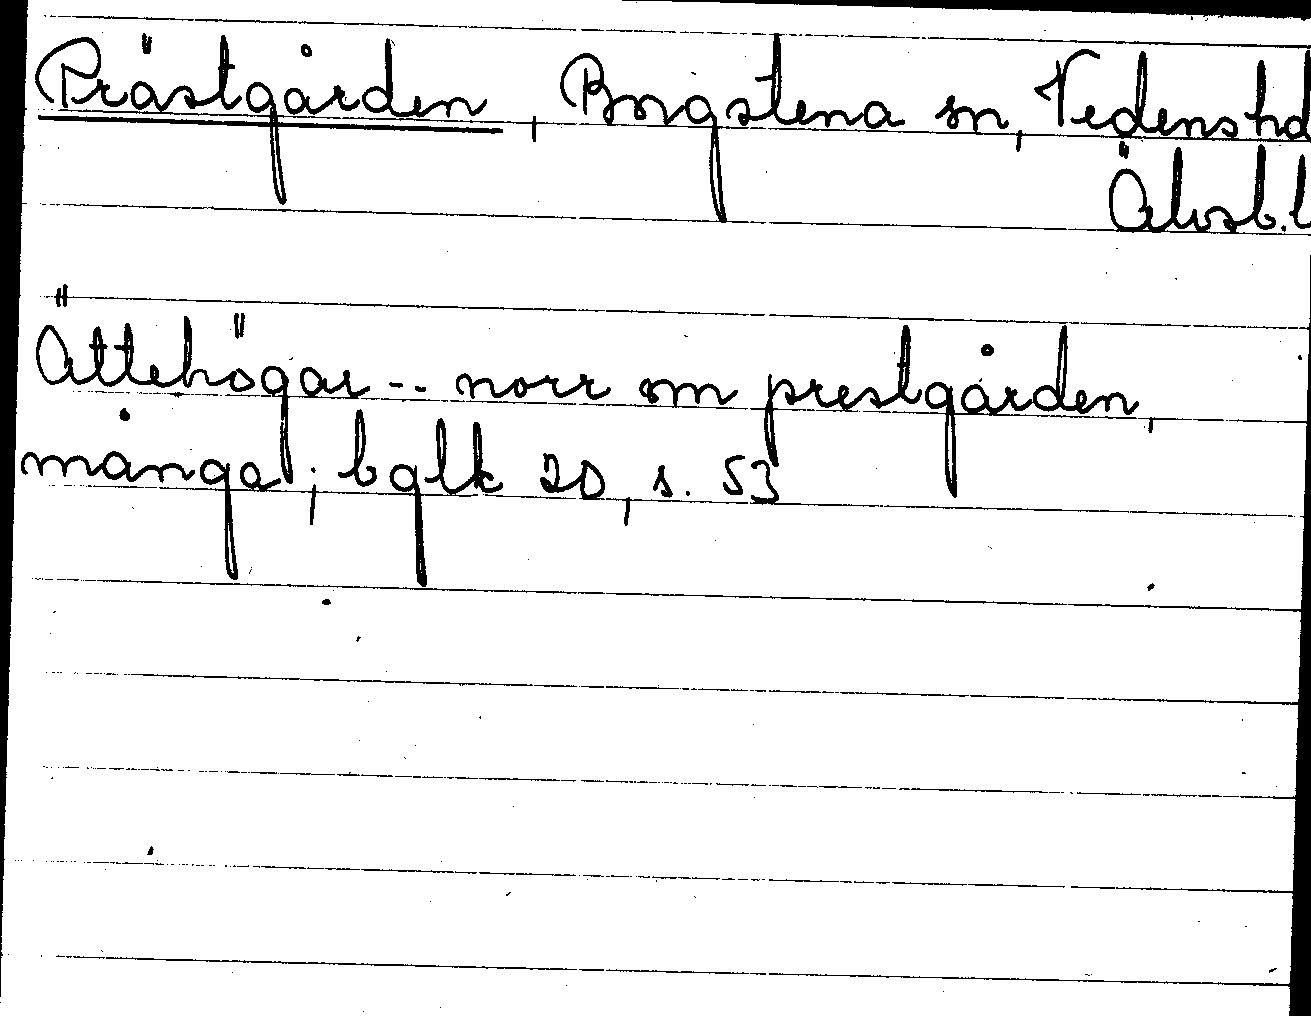 Prästgården, Borgstena sn, Vedens hd
Älvsb. l
Ättehögar -- norr om prestgården,
många; bglk 20, s. 53